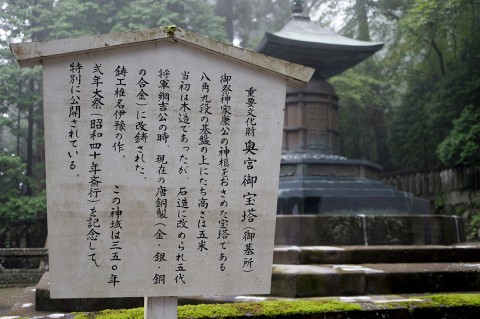 重要文化財 奥宮御宝塔(御墓所)
御祭神家康公の神柩をおさめた宝塔である
八角九段の基盤の上にたち高さは五米
当初は木造であったが、石造に改められ五代
将軍綱吉公の時、現在の唐銅製(金・銀・銅
の合金)に改鋳された。
鋳工椎名伊豫の作。 この神域は三五〇年
弐年大祭(昭和四十年斎行)を記念して、
特別に公開されている。